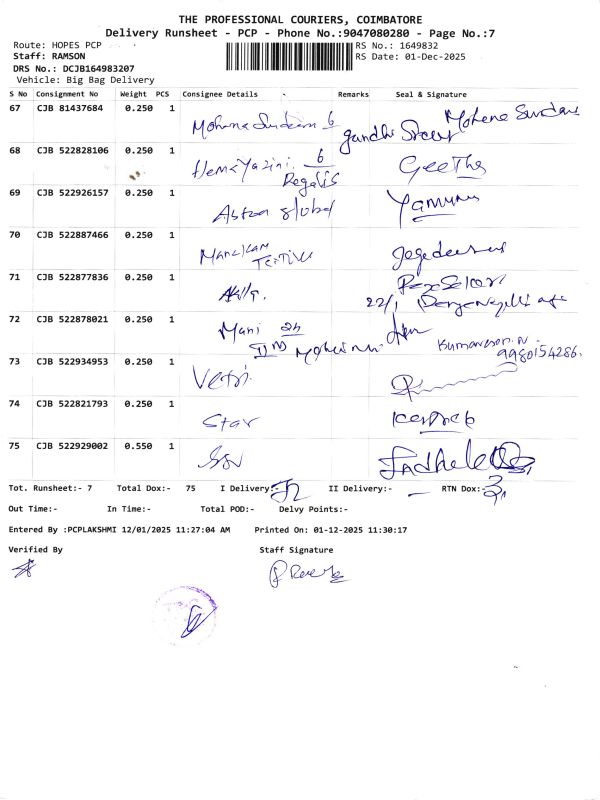 THE PROFESSIONAL COURIERS, COIMBATORE
Delivery Runsheet - PCP - Phone No.:9047080280 - Page No.:7
Route: HOPES PCP RS No.: 1649832
Staff: RAMSON RS Date: 01-Dec-2025
DRS No.: DCJB164983207
Vehicle: Big Bag Delivery
S No Consignment No Weight PCS Consignee Details Remarks Seal & Signature
67 CJB 81437684 0.250 1 Mohana Sundaram 6 Gandhi Street
68 CJB 522828106 0.250 1 Hema Yazini 6 Regalis Geetha
69 CJB 522926157 0.250 1 Astra global Yamuna
70 CJB 522887466 0.250 1 Manickam
71 CJB 522877836 0.250 1 22/1
72 CJB 522878021 0.250 1 Mani Kumaresan.N. 9980154286.
73 CJB 522934953 0.250 1 Vetri
74 CJB 522821793 0.250 1 Star
75 CJB 522929002 0.550 1
Tot. Runsheet:- 7 Total Dox:- 75 I Delivery:- 72 II Delivery:- — RTN Dox:- 3
Out Time:- In Time:- Total POD:- Delvy Points:-
Entered By :PCPLAKSHMI 12/01/2025 11:27:04 AM Printed On: 01-12-2025 11:30:17
Verified By Staff Signature